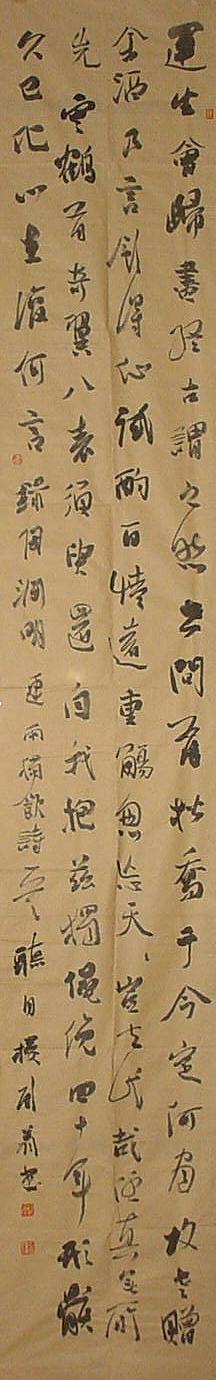 運生會歸盡終古謂之然世間有松喬于今定何間故老贈
余酒乃言飲得仙試酌百情遠重觴忽忘天〻豈去此哉任真無所
先雲鶴有奇翼八表須臾還自我抱茲獨僶俛四十年形骸
久已化心在復何言錄陶淵明連雨獨飲詩聽月樓